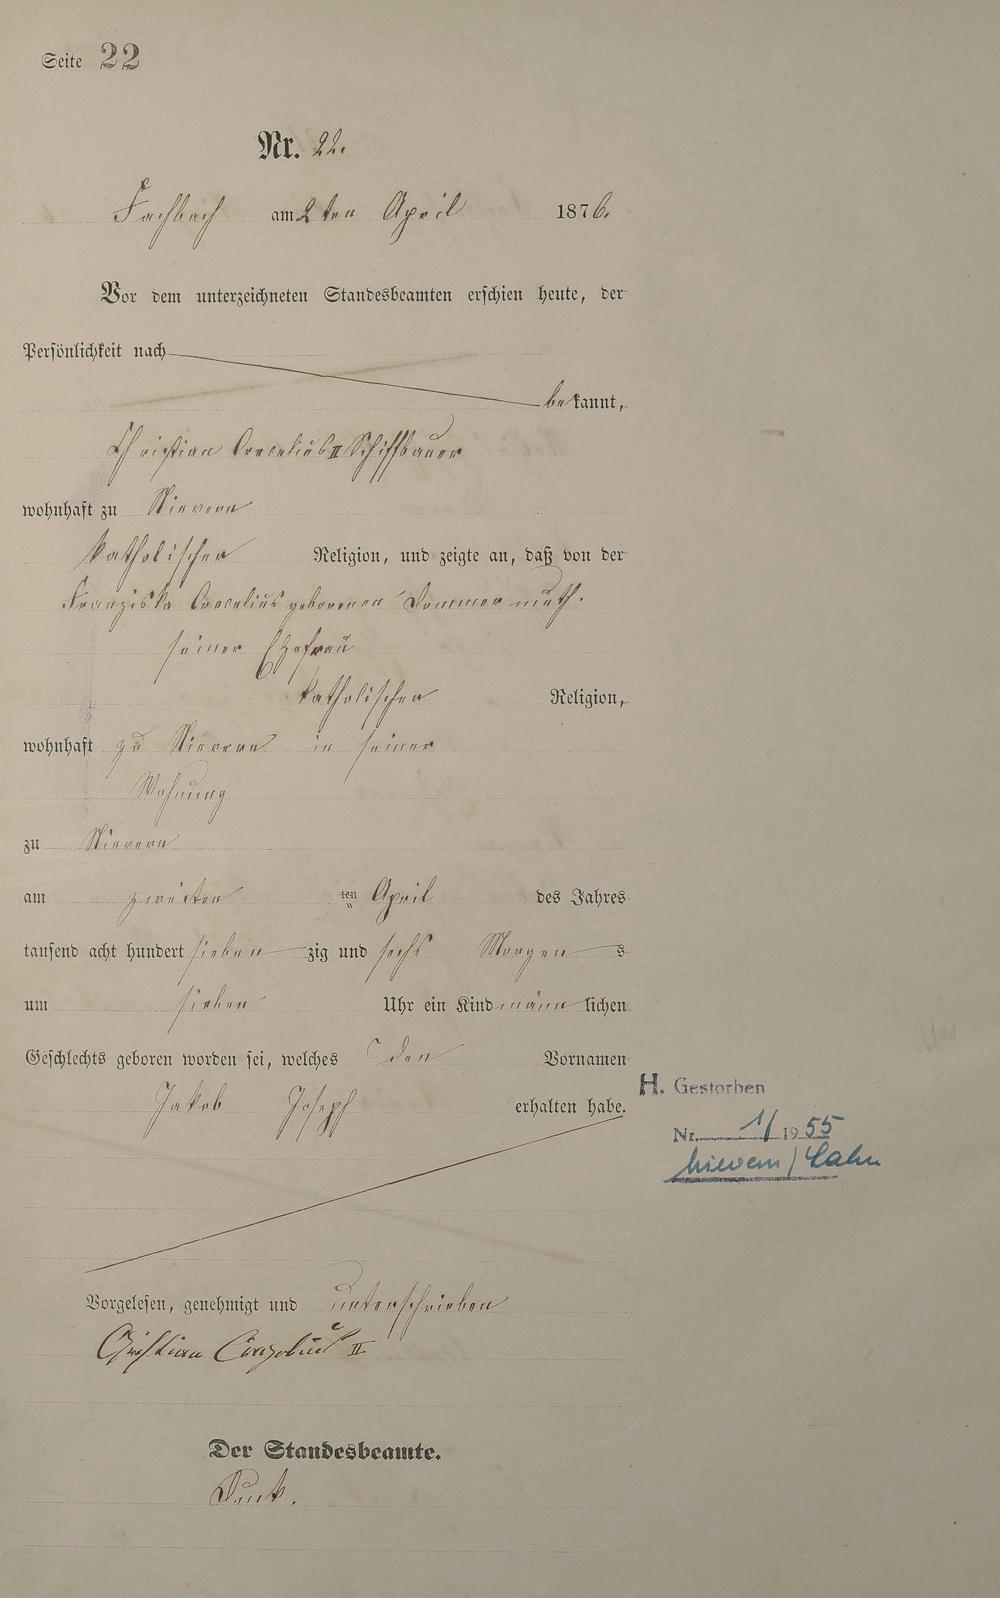 Seite 22
Nr. 22.
Fachbach am 2 ten April 1876.
Vor dem unterzeichneten Standesbeamten erschien heute, der
Persönlichkeit nach
bekannt,
Christian Crecelius II Schiffbauer
wohnhaft zu Nievern
katholischer Religion, und zeigte an, daß von der
Franziska Crecelius geborenen Dommermuth.
seiner Ehefrau
katholischer Religion,
wohnhaft zu Nievern in seiner
Wohnung
zu Nievern
am zweiten ten April des Jahres
tausend acht hundert sieben zig und sechs Morgen s
um sieben Uhr ein Kind männ lichen
Geschlechts geboren worden sei, welches den Vornamen
Jakob Joseph erhalten habe.
H. Gestorben
Nr. 1/ 1955
Nievern/Lahn
Vorgelesen, genehmigt und unterschrieben
Christian II
Der Standesbeamte.